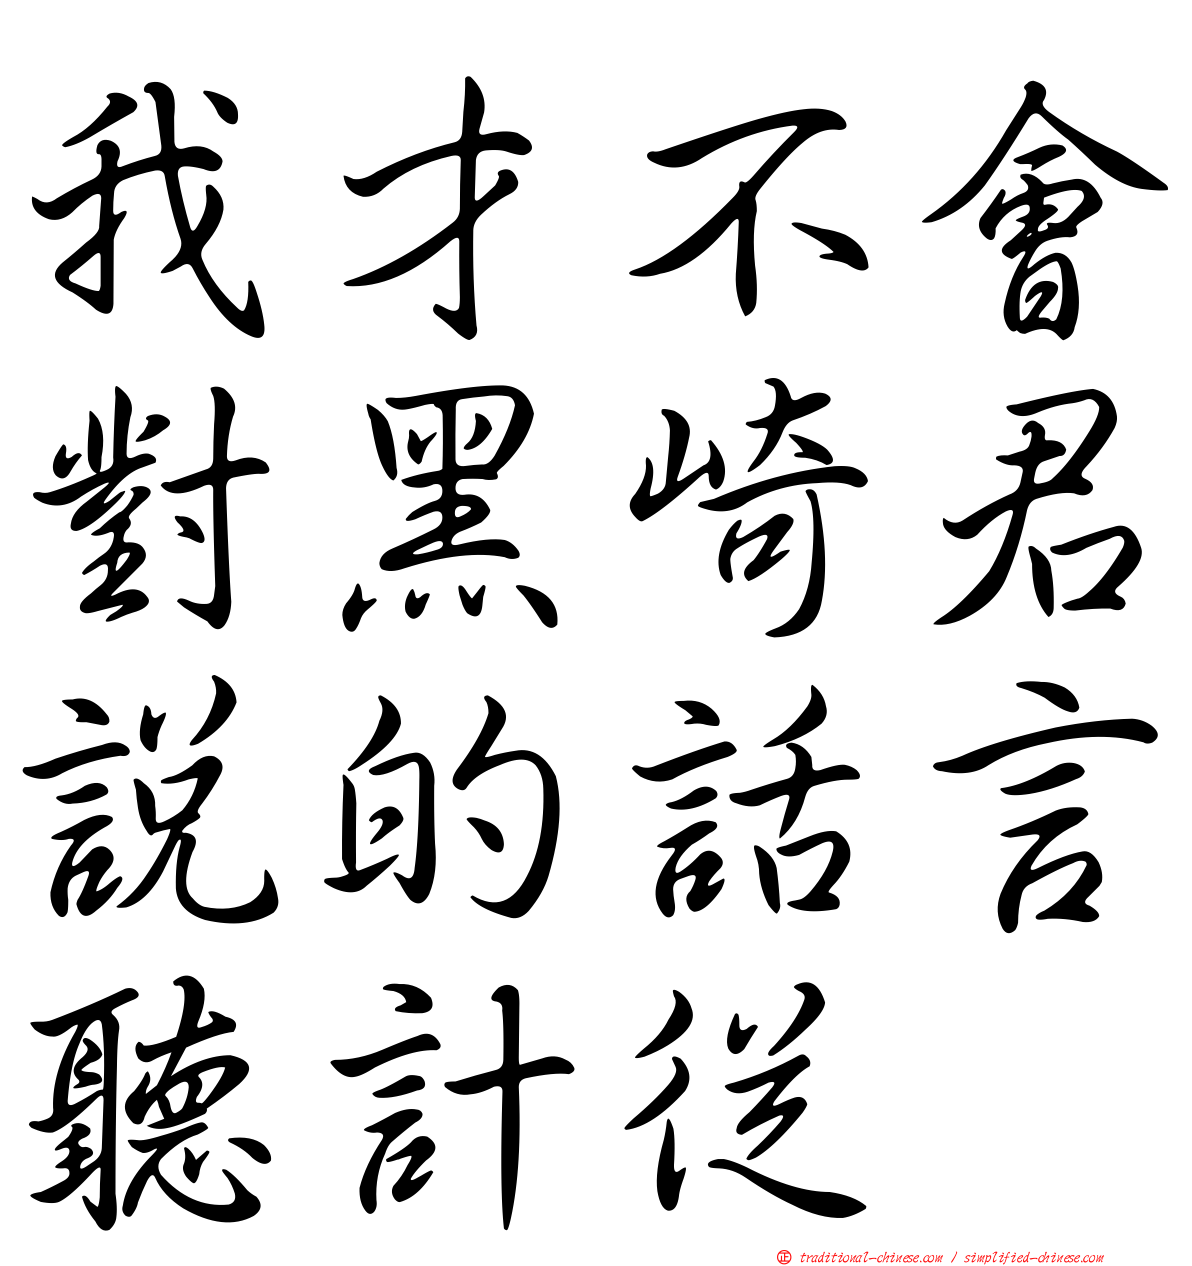 我才不會
對黑崎君
説的話言
聽計從
正 traditional-chinese.com / simplified-chinese.com